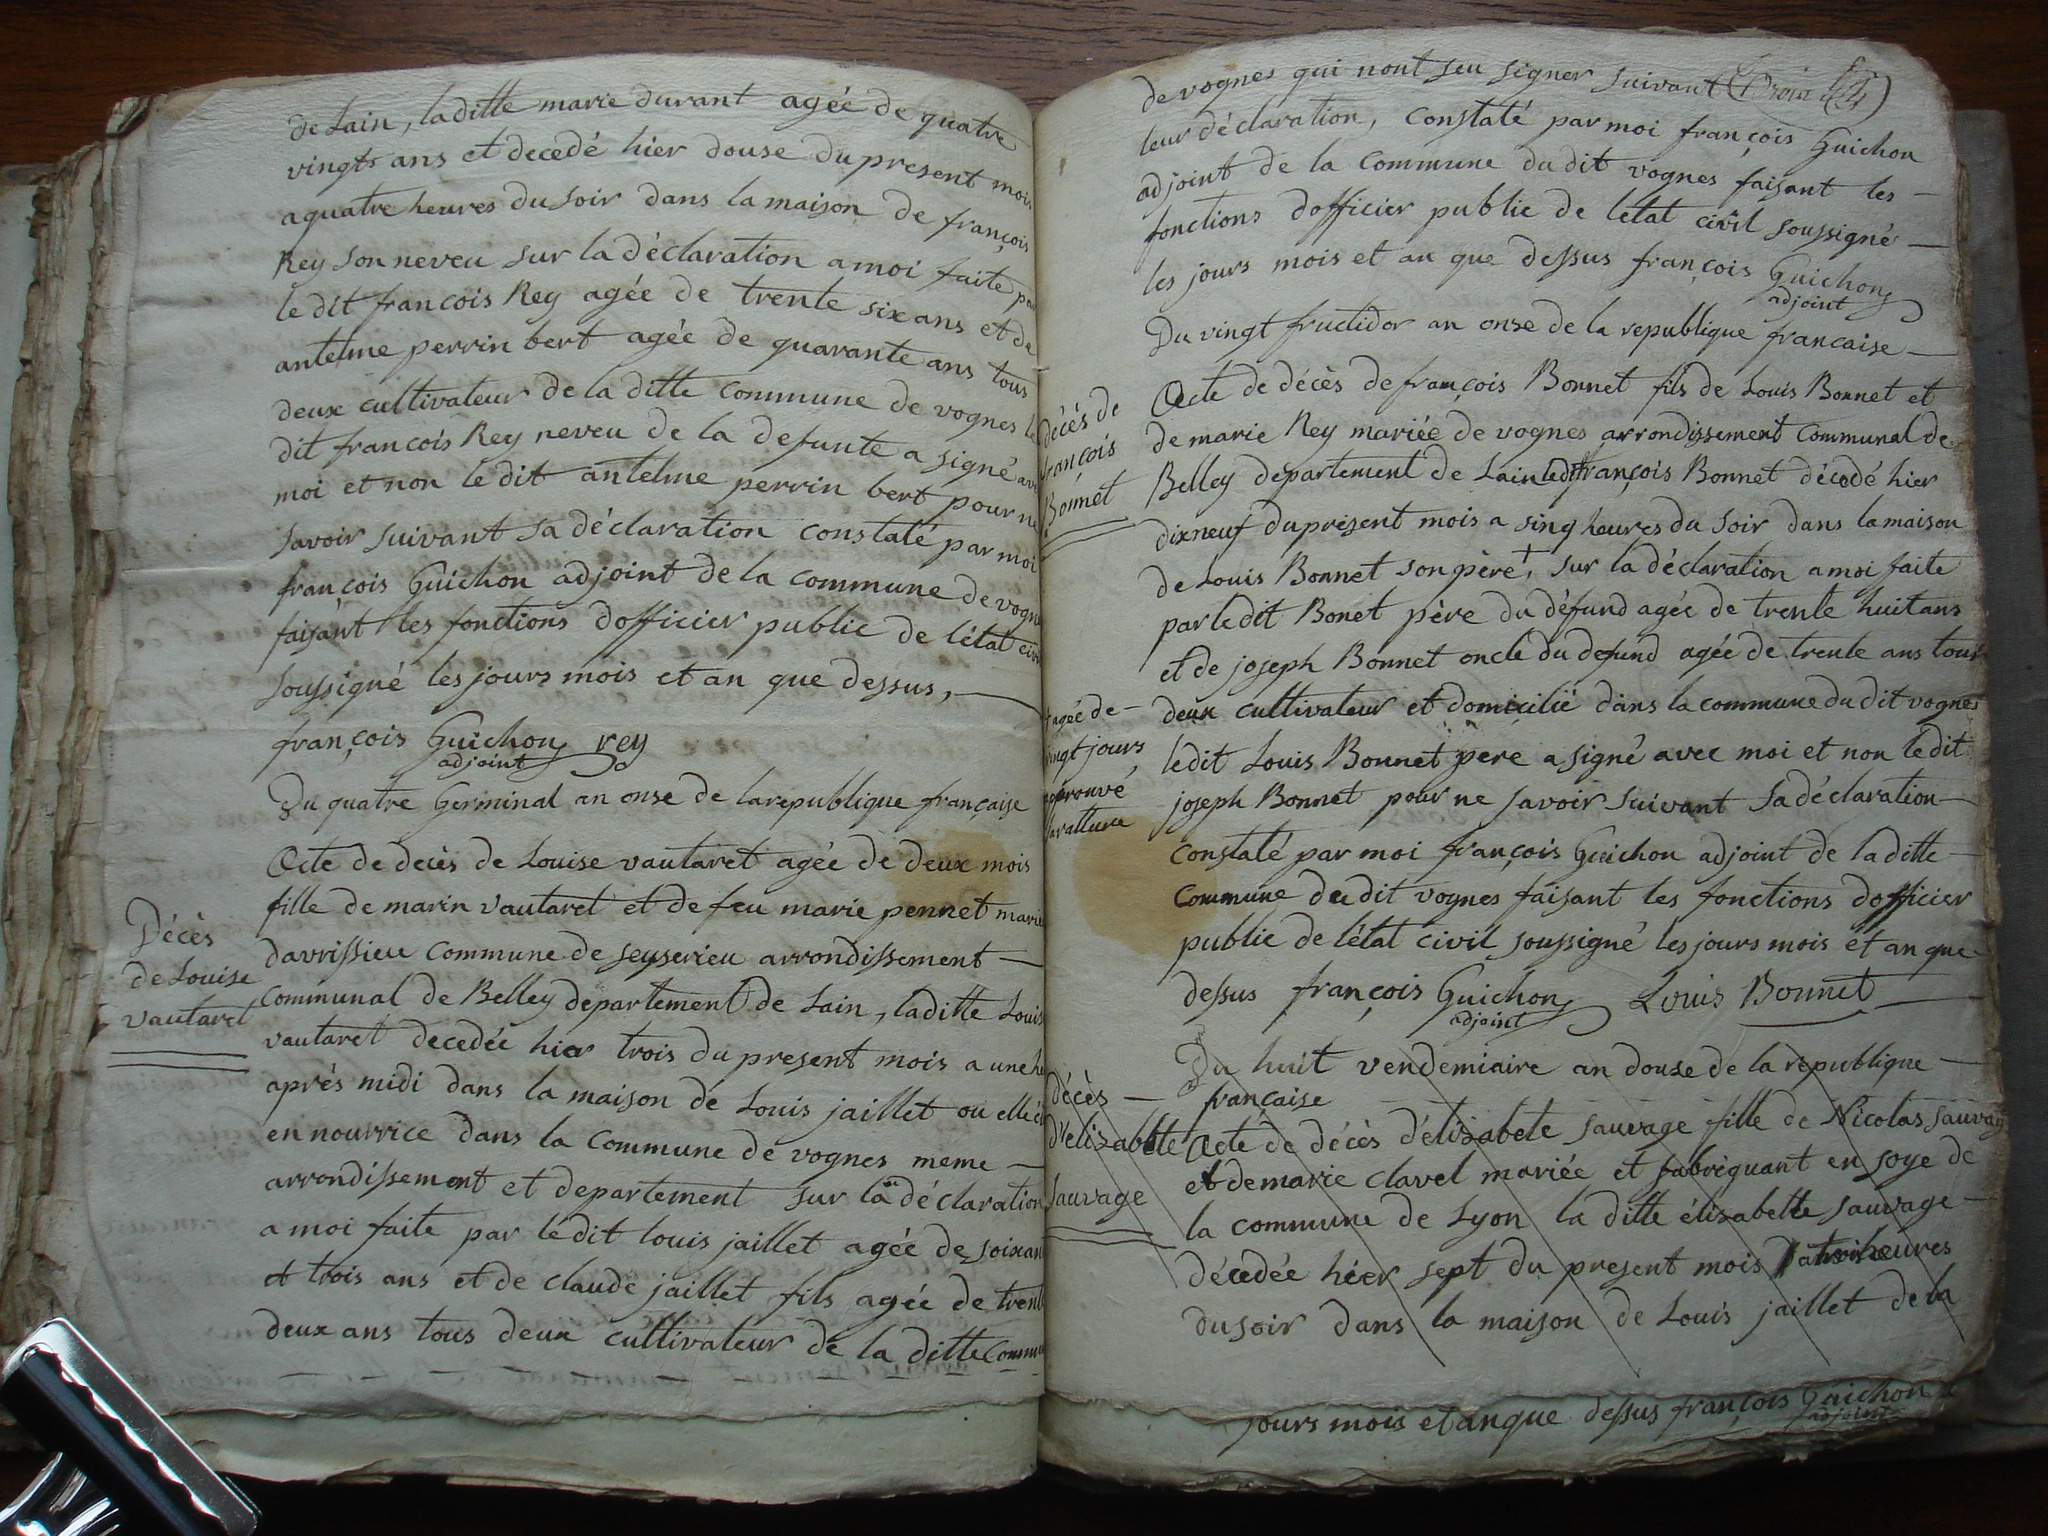 de Lain, laditte marie durant agée de quatre
vingts ans et decedé hier douse du present mois
a quatre heures du soir dans la maison de françois
Rey son neveu sur la déclaration a moi faite par
le dit francois Rey agée de trente six ans et de
antelme perrin bert agée de quarante ans tous
deux cultivateur de la ditte commune de vognes le
dit francois Rey neveu de la defunte a signé avec
moi et non le dit antelme perrin bert pour ne
savoir suivant sa déclaration constaté par moi
françois Guichon adjoint de la commune de vognes
faisant les fonctions dofficier public de létat civil
soussigné les jours mois et an que dessus,
françois Guichon rey
adjoint
Du quatre Germinal an onse de la republique française
Décès
de Louise
vautaret
Acte de decès de Louise vautaret agée de deux mois
fille de marin vautaret et de feu marie pennet marié
davrissieu commune de seyserieu arrondissement
communal de Belley departement de Lain, laditte Louise
vautaret decedée hier trois du present mois a une h
après midi dans la maison de Louis jaillet ou elle é
en nourrice dans la commune de vognes meme
arrondissement et departement sur la déclaration
a moi faite par ledit louis jaillet agée de soixan
et trois ans et de claude jaillet fils agée de trent
deux ans tous deux cultivateur de la ditte commu
de vognes qui nont seu signer suivant
leur déclaration, constaté par moi françois Guichon
adjoint de la commune du dit vognes faisant les
fonctions dofficier public de létat civil soussigné
les jours mois et an que dessus françois Guichon
adjoint
Du vingt fructidor an onse de la republique francaise
décès de
françois
Bonnet
Acte de décès de françois Bonnet fils de Louis Bonnet et
de marie Rey mariée de vognes arrondissement communal de
Belley departement de Lain ledit françois Bonnet décedé hier
dixneuf du présent mois a sinq heures du soir dans la maison
de Louis Bonnet son père +, sur la déclaration a moi faite
par le dit Bonet père du défund agée de trente huit ans
et de joseph Bonnet oncle du defund agée de trente ans tous
deux cultivateur et domicilié dans la commune du dit vognes
+ agée de
vingt jours
approuvé
la rature
ledit Louis Bonnet père a signé avec moi et non le dit
joseph Bonnet pour ne savoir suivant sa déclaration
constaté par moi françois Guichon adjoint de la ditte
commune du dit vognes faisant les fonctions dofficier
public de létat civil soussigné les jours mois et an que
dessus françois Guichon Louis Bonnet
adjoint
Du huit vendemiaire an douse de la republique
française
décès
d'elisabette
sauvage
Acte de décès d'élisabete sauvage fille de Nicolas sauvage
et de marie clavel mariée et fabriquant en soye de
la commune de Lyon la ditte élisabette sauvage
décedée hier sept du present mois a trois heures
du soir dans la maison de Louis jaillet de la
jours mois et an que dessus françois Guichon
adjoint